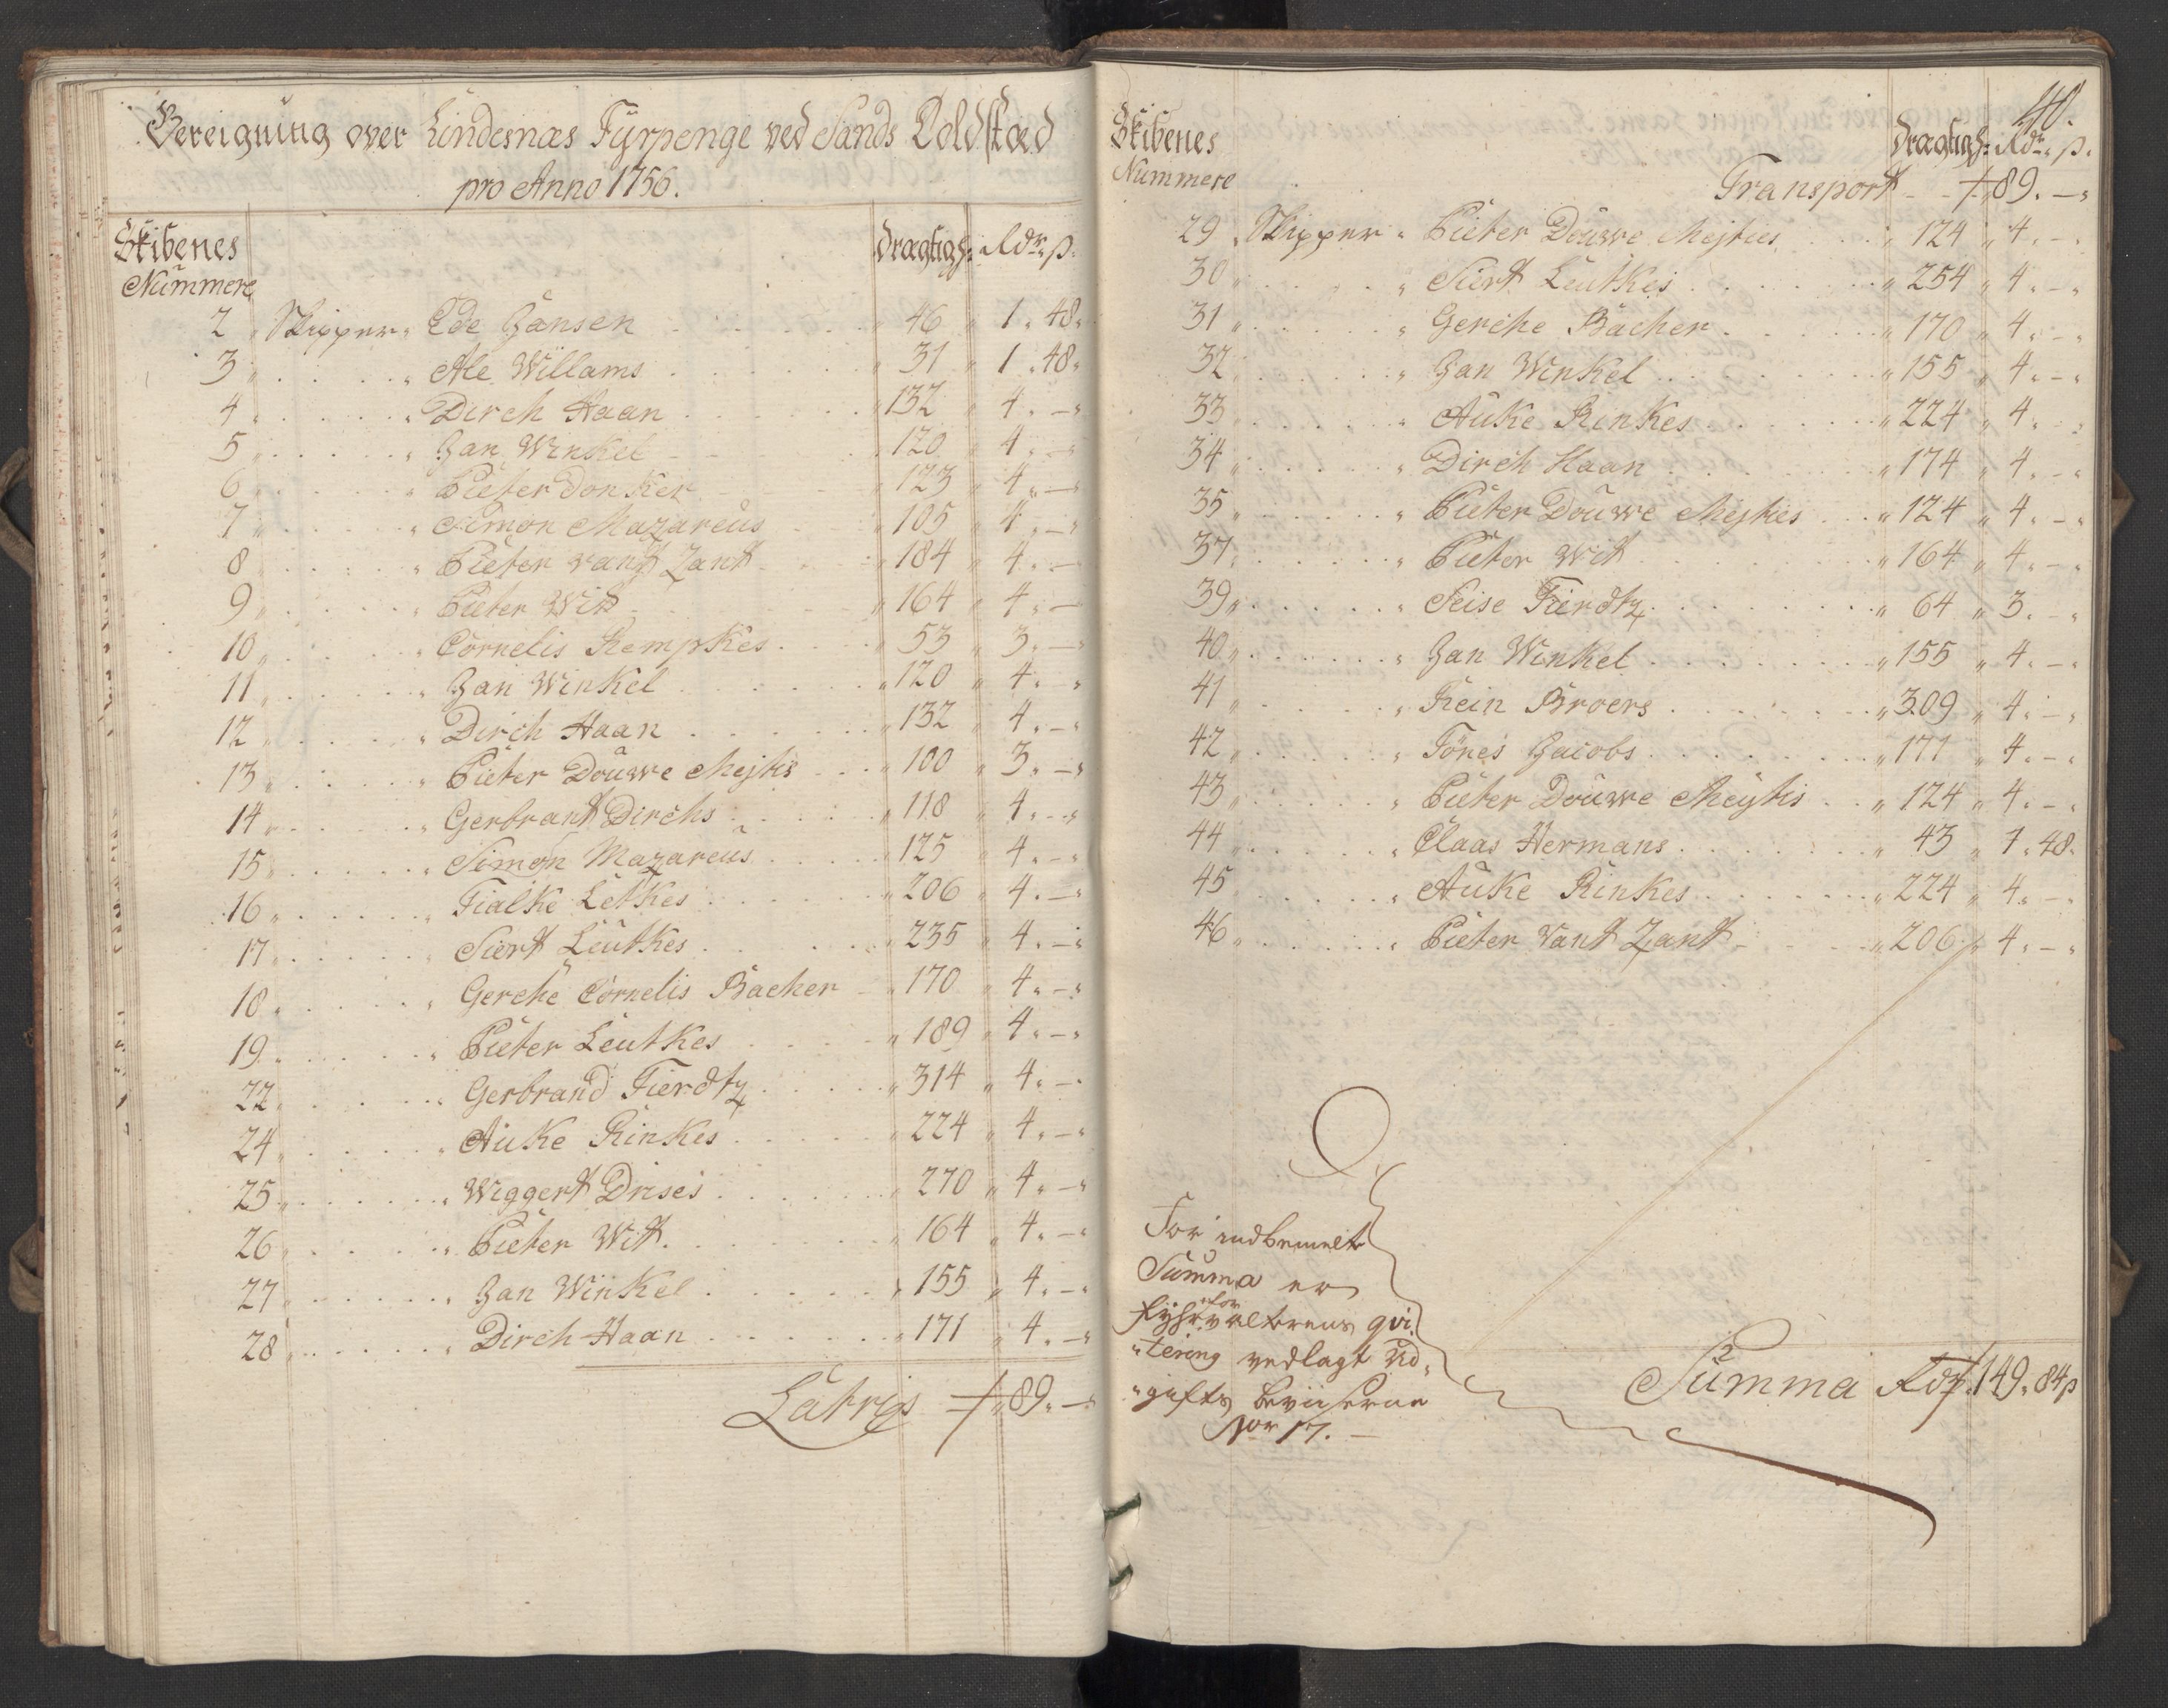 Bereigning over Lindesnæs Fyrpenge ved Sands Toldsted
pro Anno 1756.
Skibenes Nummere Drægtigh: Rdr. ß.
2 Skipper Ede Jansen 46 1. 48.
3 Ale Willams 31 1. 48.
4 Dirch Haan 132 4. -
5 Jan Winkel 120 4. -
6 Pieter Donker 123 4. -
7 Simon Mazareus 105 4. -
8 Pieter vant Zant 184 4. -
9 Pieter Wit 164 4. -
10 Cornelis Rempkes 53 3. -
11 Jan Winkel 120 4. -
12 Dirch Haan 132 4. -
13 Pieter Douwe Mejtis 100 3. -
14 Gerbrant Dirchs 118 4. -
15 Simon Mazareus 125 4. -
16 Tialke Letkes 206 4. -
17 Siert Leutkes 235 4. -
18 Gerche Cornelis Backer 170 4. -
19 Pieter Leutkes 189 4. -
22 Gerbrand Tierdtz 314 4. -
24 Auke Rinkes 224 4. -
25 Wiggert Drises 270 4. -
26 Pieter Wit 164 4. -
27 Jan Winkel 155 4. -
28 Dirch Haan 171 4. -
Latris 89. -
40.
Skibenes Nummere Drægtigh: Rdr. ß.
Transport 89. -
29 Skipper Pieter Douwe Mejties 124 4. -
30 Siert Leutkes 254 4. -
31 Gerche Backer 170 4. -
32 Jan Winkel 155 4. -
33 Auke Rinkes 224 4. -
34 Dirch Haan 174 4. -
35 Pieter Douwe Mejties 124 4. -
37 Pieter Wit 164 4. -
39 Seise Tierdtz 64 3. -
40 Jan Winkel 155 4. -
41 Rein Broers 309 4. -
42 Tönes Jacobs 171 4. -
43 Pieter Douwe Meytis 124 4. -
44 Claas Hermans 43 1. 48.
45 Auke Rinkes 224 4. -
46 Pieter Vant Zant 206 4. -
For indbemelte
Summa er
Fyhrforvalterens qvi
tering vedlagt Ud
gifts beviiserne
Nor 17. -
Summa Rdr. 149. 84 ß